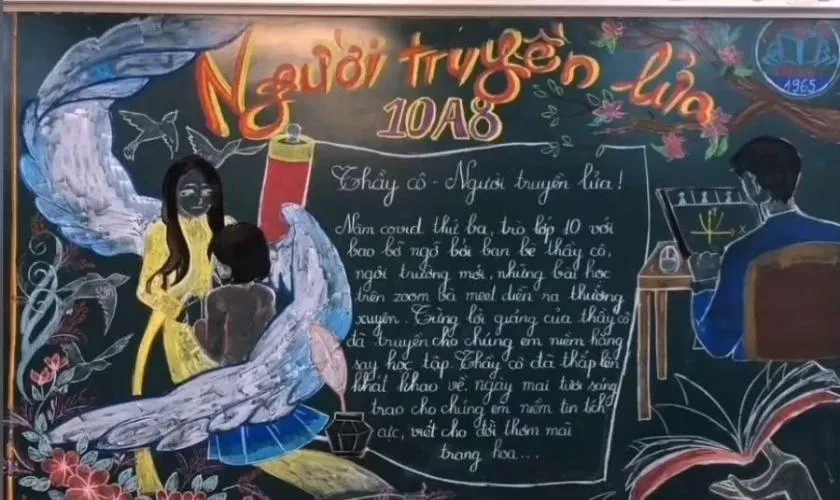 Người truyền lửa
10A8
1965
Thầy cô - Người truyền lửa!
Năm covid thứ ba, trò lớp 10 với
bao bỡ ngỡ bởi bạn bè thầy cô,
ngôi trường mới, những bài học
trên zoom và meet diễn ra thường
xuyên. Từng lời giảng của thầy cô
đã truyền cho chúng em niềm hăng
say học tập. Thầy cô đã thắp lên
khát khao về ngày mai tươi sáng
trao cho chúng em niềm tin tích
cực, viết cho đời thơm mãi
trang hoa...
x